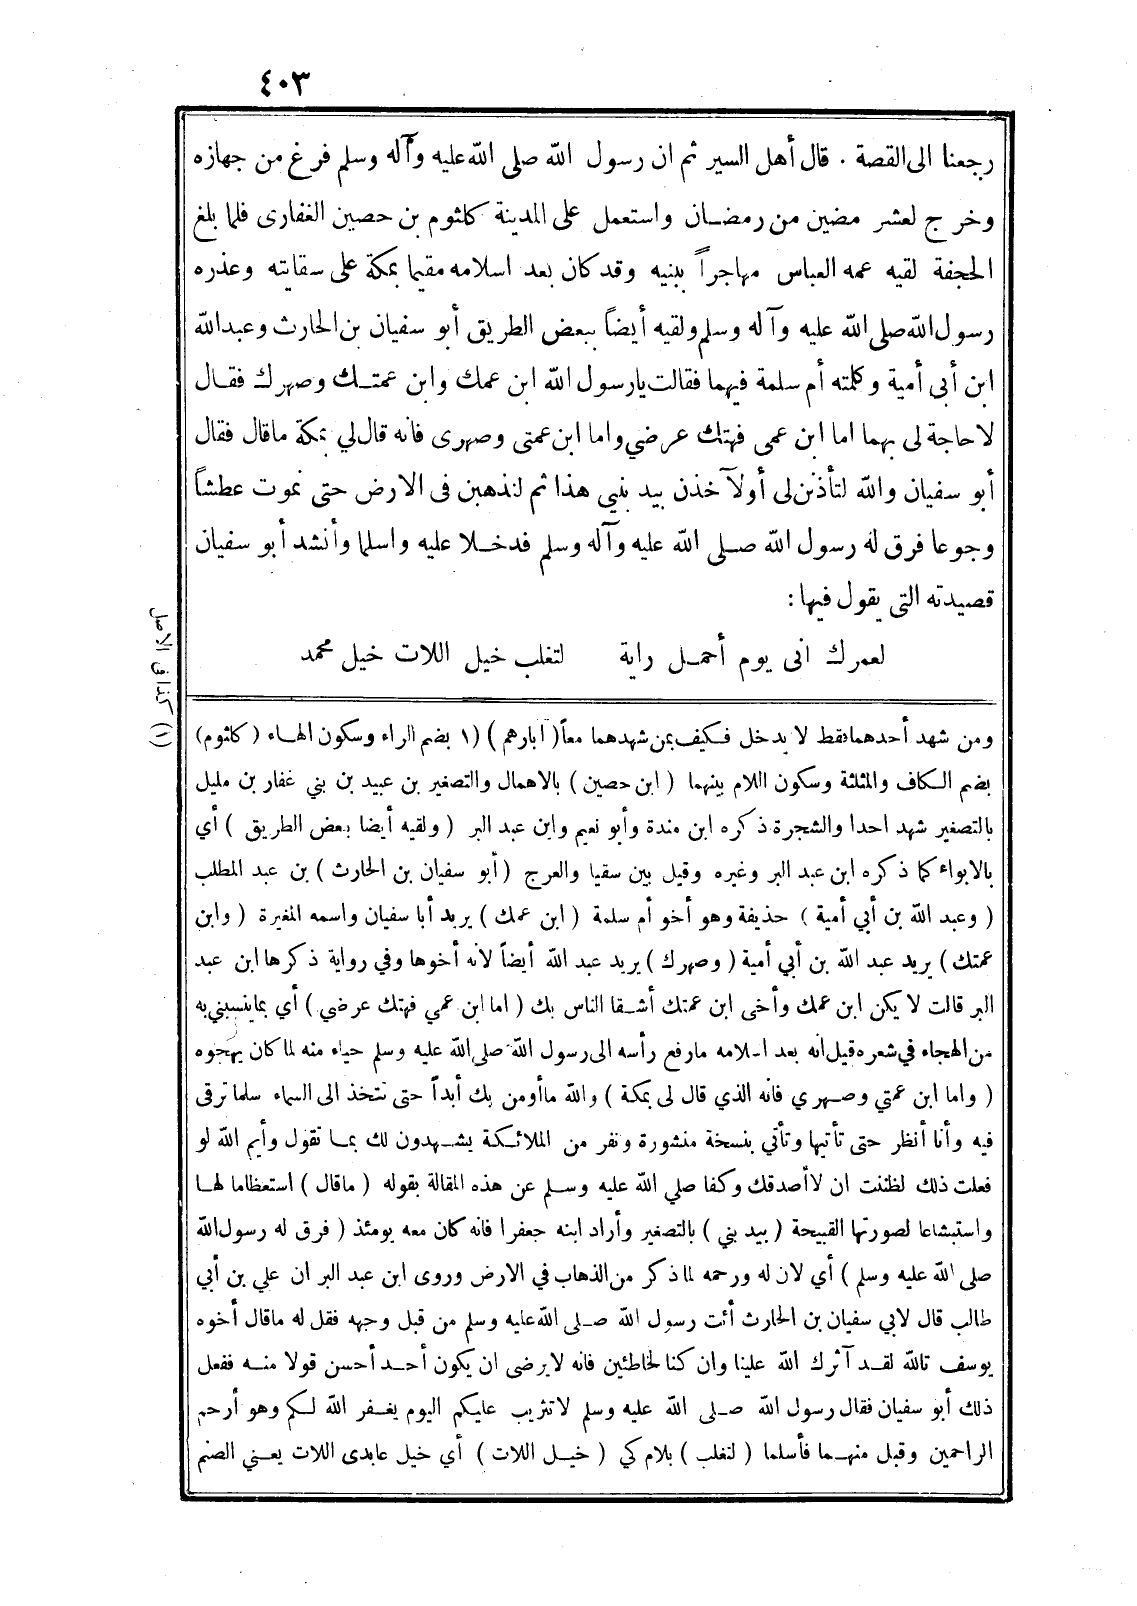 ٤٠٣
رجعنا الى القصة . قال أهل السير ثم ان رسول الله صلى الله عليه وآله وسلم فرغ من جهازه
وخرج لعشر مضين من رمضان واستعمل على المدينة كلثوم بن حصين الغفارى فلما بلغ
الحجفة لقيه عمه العباس مهاجراً ببنيه وقد كان بعد اسلامه مقيما بمكة على سقايته وعذره
رسول الله صلى الله عليه وآله وسلم ولقيه أيضاً ببعض الطريق أبو سفيان بن الحارث وعبدالله
ابن أبى أمية وكلمته أم سلمة فيهما فقالت يارسول الله ابن عمك وابن عمتك وصهرك فقال
لاحاجة لى بهما اما ابن عمى فهتك عرضي واما ابن عمتى وصهرى فانه قال لي بمكة ماقال فقال
أبو سفيان والله لتأذنن لى أولآ خذن بيد بنيي هذا ثم لنذهبن فى الارض حتى نموت عطشاً
وجوعا فرق له رسول الله صلى الله عليه وآله وسلم فدخلا عليه واسلما وأنشد أبو سفيان
قصيدته التى يقول فيها :
لعمرك انى يوم أحمل راية لتغلب خيل اللات خيل محمد
ومن شهد أحدهما فقط لا يدخل فكيف بمن شهدهما معاً ( ابارهم ) (١ بضم الراء وسكون الهاء ( كلثوم)
بضم الكاف والمثلثة وسكون اللام بينهما ( ابن حصين ) بالاهمال والتصغير بن عبيد بن بني غفار بن مليل
بالتصغير شهد احدا والشجرة ذكره ابن مندة وأبو نعيم وابن عبد البر ( ولقيه أيضا بعض الطريق ) أي
بالابواء كما ذكره ابن عبد البر وغيره وقيل بين سقيا والعرج ( أبو سفيان بن الحارث ) بن عبد المطلب
( وعبد الله بن أبي أمية ) حذيفة وهو أخو أم سلمة ( ابن عمك ) يريد أبا سفيان واسمه المغيرة ( وابن
عمتك ) يريد عبد الله بن أبي أمية ( وصهرك ) يريد عبد الله أيضاً لانه أخوها وفي رواية ذكرها ابن عبد
البر قالت لا يكن ابن عمك وأخى ابن عمتك أشقا الناس بك ( اما ابن عمي فهتك عرضي ) أي بماينسبني به
من الهجاء في شعره قيل انه بعد اسلامه مارفع رأسه الى رسول الله صلى الله عليه وسلم حياء منه لما كان يهجوه
( واما ابن عمتي وصهري فانه الذي قال لى بمكة ) والله ماأومن بك أبداً حتى نتخذ الى السماء سلما ترقى
فيه وأنا أنظر حتى تأتيها وتأتي بنسخة منشورة ونفر من الملائكة يشهدون لك بما تقول وأيم الله لو
فعلت ذلك لظننت ان لاأصدقك وكفا صلي الله عليه وسلم عن هذه المقالة بقوله ( ماقال ) استعظاما لها
واستبشاعا لصورتها القبيحة ( بيد بني ) بالتصغير وأراد ابنه جعفرا فانه كان معه يومئذ ( فرق له رسول الله
صلى الله عليه وسلم ) أي لان له ورحمه لما ذكر من الذهاب في الارض وروى ابن عبد البر ان علي بن أبي
طالب قال لابي سفيان بن الحارث أئت رسول الله صلى الله عليه وسلم من قبل وجهه فقل له ماقال أخوه
يوسف تالله لقد آثرك الله علينا وان كنا لخاطئين فانه لايرضى ان يكون أحد أحسن قولا منه ففعل
ذلك أبو سفيان فقال رسول الله صلى الله عليه وسلم لاتثريب عليكم اليوم يغفر الله لكم وهو أرحم
الراحمين وقبل منهما فأسلما ( لتغلب ) بلام كي ( خيل اللات ) أي خيل عابدى اللات يعني الصنم
(١) كذا فى الاصل